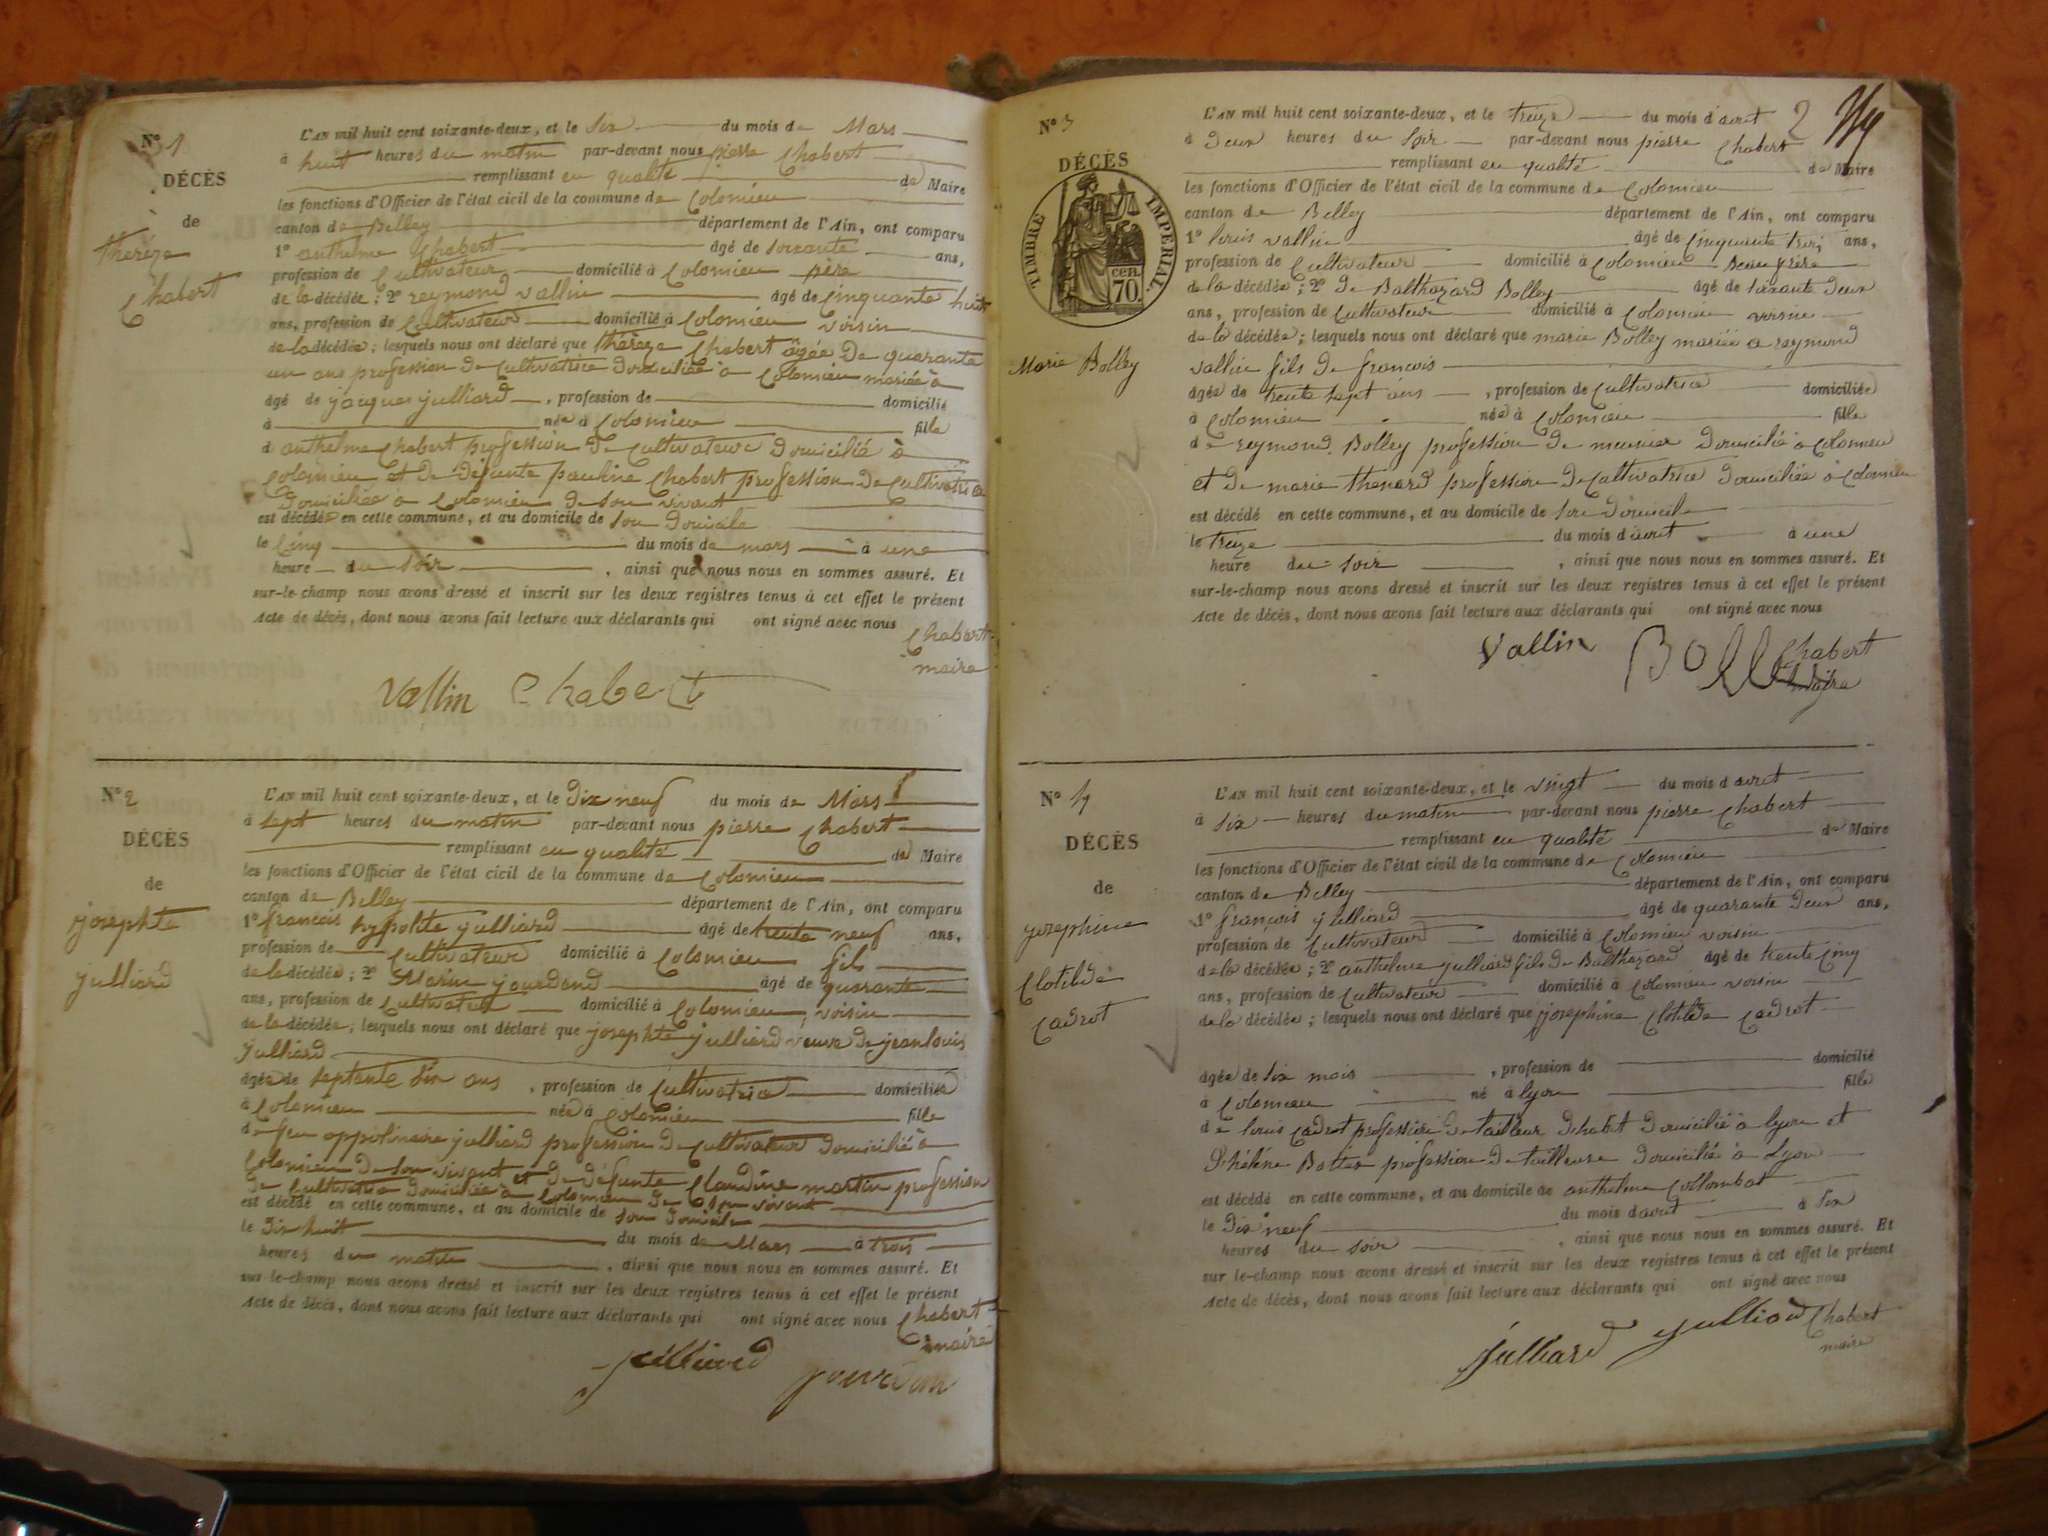 N° 1
DÉCÈS
de
thérèze
Chabert
L'AN mil huit cent soixante-deux, et le six du mois de Mars
à huit heures du matin par-devant nous pierre Chabert
remplissant en qualité de Maire
les fonctions d'Officier de l'état civil de la commune de Colomieu
canton de Belley département de l'Ain, ont comparu
1° anthelme Chabert âgé de soixante ans,
profession de Cultivateur domicilié à Colomieu père
de la décédée; 2° reymond vallin âgé de Cinquante huit
ans, profession de Cultivateur domicilié à Colomieu voisin
de la décédée; lesquels nous ont déclaré que thérèze Chabert âgée de quarante
un ans profession de Cultivatrice domiciliée à Colomieu mariée à
âgé de jacques julliard, profession de domicilié
à née à Colomieu fille
d anthelme Chabert profession de Cultivateur domicilié à
Colomieu et de défunte pauline Chabert profession de Cultivatrice
domiciliée à Colomieu de son vivant
est décédée en cette commune, et au domicile de son domicile
le Cinq du mois de mars à une
heure du soir, ainsi que nous nous en sommes assuré. Et
sur-le-champ nous avons dressé et inscrit sur les deux registres tenus à cet effet le présent
Acte de décès, dont nous avons fait lecture aux déclarants qui ont signé avec nous
Chabert
maire
Vallin Chabert
N° 2
DÉCÈS
de
josephte
julliard
L'AN mil huit cent soixante-deux, et le Dix neuf du mois de Mars
à sept heures du matin par-devant nous pierre Chabert
remplissant en qualité de Maire
les fonctions d'Officier de l'état civil de la commune de Colomieu
canton de Belley département de l'Ain, ont comparu
1° francois hypolite julliard âgé de trente neuf ans,
profession de Cultivateur domicilié à Colomieu fils
de la décédée; 2° Marin jourdand âgé de quarante
ans, profession de Cultivateur domicilié à Colomieu, voisin
de la décédée; lesquels nous ont déclaré que josephte julliard veuve de jean louis
julliard
âgée de septante six ans, profession de Cultivatrice domiciliée
à Colomieu née à Colomieu fille
de feu appolinaire julliard profession de Cultivateur domicilié à
Colomieu de son vivant et de défunte Claudine martin profession
de Cultivatrice domiciliée à Colomieu de son vivant
est décédé en cette commune, et au domicile de son domicile
le Dix huit du mois de Mars à trois
heures du matin, ainsi que nous nous en sommes assuré. Et
sur-le-champ nous avons dressé et inscrit sur les deux registres tenus à cet effet le présent
Acte de décès, dont nous avons fait lecture aux déclarants qui ont signé avec nous Chabert
maire
julliard jourdan
2
N° 3
DÉCÈS
TIMBRE IMPERIAL.
cen.
70.
Marie Bolley
L'AN mil huit cent soixante-deux, et le treize du mois d'avril
à Deux heures du soir par-devant nous pierre Chabert
remplissant en qualité de Maire
les fonctions d'Officier de l'état civil de la commune de Colomieu
canton de Belley département de l'Ain, ont comparu
1° louis vallin âgé de Cinquante trois ans,
profession de Cultivateur domicilié à Colomieu Beau frère
de la décédée; 2° de Balthazard Bolley âgé de soixante deux
ans, profession de Cultivateur domicilié à Colomieu voisin
de la décédée; lesquels nous ont déclaré que marie Bolley mariée a reymond
vallin fils de francois
âgée de trente sept ans, profession de Cultivatrice domiciliée
à Colomieu née à Colomieu fille
de reymond Bolley profession de meunier domicilié à Colomieu
et de marie thenard profession de Cultivatrice domiciliée à Colomieu
est décédé en cette commune, et au domicile de son domicile
le treize du mois d'avril à une
heure du soir, ainsi que nous nous en sommes assuré. Et
sur-le-champ nous avons dressé et inscrit sur les deux registres tenus à cet effet le présent
Acte de décès, dont nous avons fait lecture aux déclarants qui ont signé avec nous
Vallin Bolley Chabert
maire
N° 4
DÉCÈS
de
josephine
Clotilde
Cadrot
L'AN mil huit cent soixante-deux, et le vingt du mois d avril
à six heures du matin par-devant nous pierre Chabert
remplissant en qualité de Maire
les fonctions d'Officier de l'état civil de la commune de Colomieu
canton de Belley département de l'Ain, ont comparu
1° françois julliard âgé de quarante deux ans,
profession de Cultivateur domicilié à Colomieu voisin
de la décédée; 2° anthelme julliard fils de Balthazard âgé de trente cinq
ans, profession de Cultivateur domicilié à Colomieu voisin
de la décédée; lesquels nous ont déclaré que josephine Clotilde Cadrot
âgée de six mois, profession de domicilié
à Colomieu né à lyon fille
de louis Cadrot profession de tailleur d'habit domicilié à lyon et
d'hélène profession de tailleuse domicilié à Lyon
est décédé en cette commune, et au domicile de anthelme Collombat
le Dix neuf du mois d avril à six
heures du soir, ainsi que nous nous en sommes assuré. Et
sur le-champ nous avons dressé et inscrit sur les deux registres tenus à cet effet le présent
Acte de décès, dont nous avons fait lecture aux déclarants qui ont signé avec nous
julliard julliard Chabert
maire